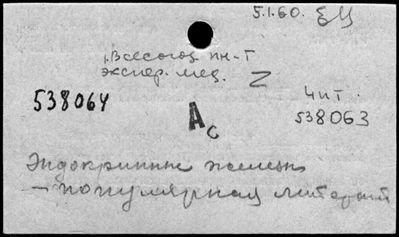 5.1.60. ЕЦ
Всесоюз ин-т
экспер. мед. Z
538064
Чит.
Ас
538063
Эндокринные железы
– популярная литерат